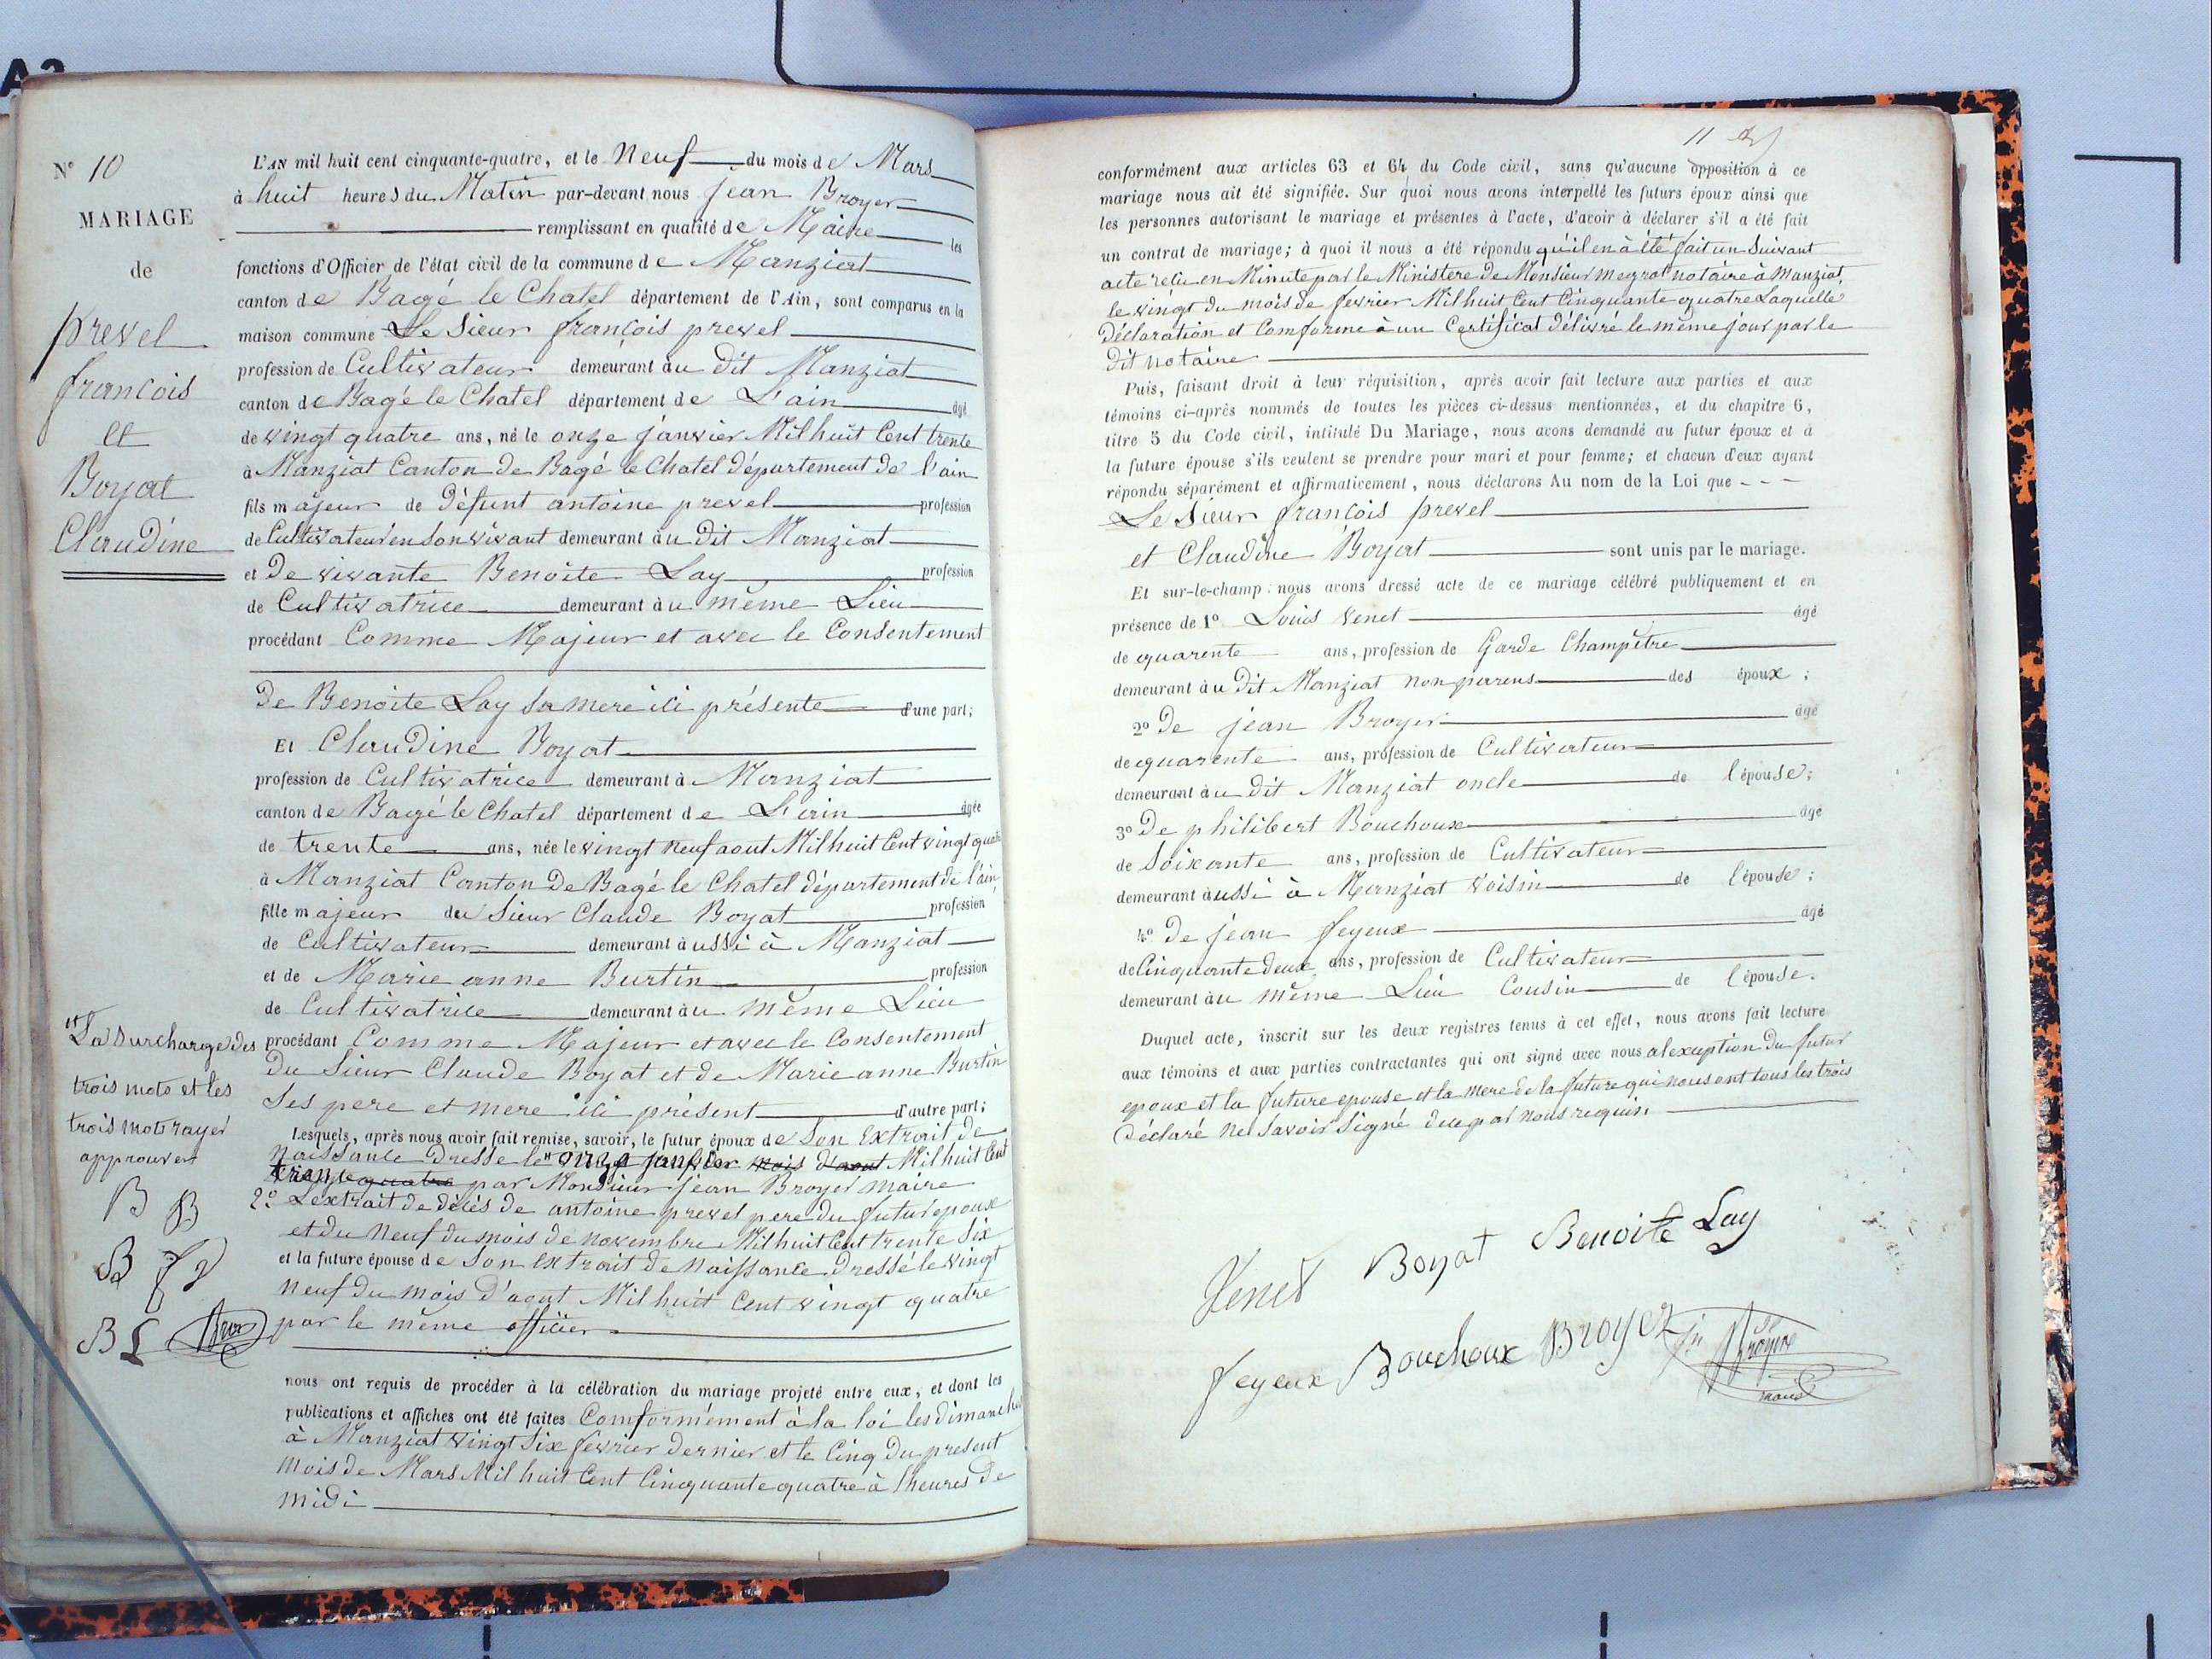 A3
N° 10
MARIAGE
de
prevel
francois
et
Boyat
Claudine
L'AN mil huit cent cinquante-quatre, et le Neuf du mois de Mars
à huit heures du Matin par-devant nous jean Broyer
remplissant en qualité de Maire les
fonctions d'Officier de l'état civil de la commune de Manziat
canton de Bagé le Chatel département de l'Ain, sont comparus en la
maison commune Le Sieur françois prevel
profession de Cultivateur demeurant au dit Manziat
canton de Bagé le Chatel département de L'ain âgé
de vingt quatre ans, né le onze janvier Mil huit Cent trente
à Manziat Canton de Bagé le Chatel département de l'ain
fils majeur de Défunt antoine prevel profession
de Cultivateur en son vivant demeurant au dit Manziat
et De vivante Benoite Lay profession
de Cultivatrice demeurant au même Lieu
procédant Comme Majeur et avec le Consentement
De Benoite Lay sa mere ici présente d'une part;
Et Claudine Boyat
profession de Cultivatrice demeurant à Manziat
canton de Bagé le Chatel département de L'ain âgée
de trente ans, née le vingt neuf aout Mil huit Cent vingt quatre
à Manziat Canton De Bagé le Chatel département de l'ain
fille majeur du Sieur Claude Boyat profession
de Cultivateur demeurant aussi à Manziat
et de Marie anne Burtin profession
de Cultivatrice demeurant au même Lieu
procédant Comme Majeur et avec le Consentement
Du Sieur Claude Boyat et de Marie anne Burtin
Ses pere et mere ici présent d'autre part;
Lesquels, après nous avoir fait remise, savoir, le futur époux de Son Extrait de
naissance Dressé le onze janvier mois d'aout Mil huit Cent
trente quatre par Monsieur jean Broyer maire
2° L'extrait de décès de antoine prevel pere du futur époux
et du Neuf du mois de novembre Mil huit Cent trente Six
et la future épouse de Son extrait de Naissance Dressé le vingt
neuf Du mois D'aout Mil huit Cent vingt quatre
par le même officier
La Surcharge des
trois mots et les
trois mots rayer
approuver
B B
B
B L Bro
nous ont requis de procéder à la célébration du mariage projeté entre eux, et dont les
publications et affiches ont été faites Conformément à la loi les dimanches
à Manziat vingt Six fevrier Dernier et le Cinq Du present
Mois de Mars Mil huit Cent Cinquante quatre à l'heures De
midi
11
conformément aux articles 63 et 64 du Code civil, sans qu'aucune opposition à ce
mariage nous ait été signifiée. Sur quoi nous avons interpellé les futurs époux ainsi que
les personnes autorisant le mariage et présentes à l'acte, d'avoir à déclarer s'il a été fait
un contrat de mariage; à quoi il nous a été répondu qu'il en à été fait un Suivant
acte reçu en Minute par le Ministere De Monsieur Meyral notaire à Manziat,
le vingt du mois de fevrier Mil huit Cent Cinquante quatre Laquelle
Déclaration et Comforme à un Certificat Délivré le même jour par le
Dit notaire
Puis, faisant droit à leur réquisition, après avoir fait lecture aux parties et aux
témoins ci-après nommés de toutes les pièces ci-dessus mentionnées, et du chapitre 6,
titre 5 du Code civil, intitulé Du Mariage, nous avons demandé au futur époux et à
la future épouse s'ils veulent se prendre pour mari et pour femme; et chacun d'eux ayant
répondu séparément et affirmativement, nous déclarons Au nom de la Loi que - - -
Le Sieur françois prevel
et Claudine Boyat sont unis par le mariage.
Et sur-le-champ nous avons dressé acte de ce mariage célébré publiquement et en
présence de 1° Louis Venet âgé
de quarente ans, profession de Garde Champêtre
demeurant au Dit Manziat non parens des époux;
2° De jean Broyer âgé
de quarente ans, profession de Cultivateur
demeurant au dit Manziat oncle de l'épouse;
3° De philibert Bouchoux âgé
de Soixante ans, profession de Cultivateur
demeurant aussi à Manziat Voisin de l'épouse;
4° De jean feyeux âgé
de Cinquante Deux ans, profession de Cultivateur
demeurant au même Lieu Cousin de l'épouse.
Duquel acte, inscrit sur les deux registres tenus à cet effet, nous avons fait lecture
aux témoins et aux parties contractantes qui ont signé avec nous al exeption Du futur
epoux et la future epouse et la mere De la future qui nous ont tous les trois
Déclaré ne Savoir Signé De ce par nous requis.
Venet Boyat Benoite Lay
feyeux Bouchoux Broyer Jn Broyer
maire